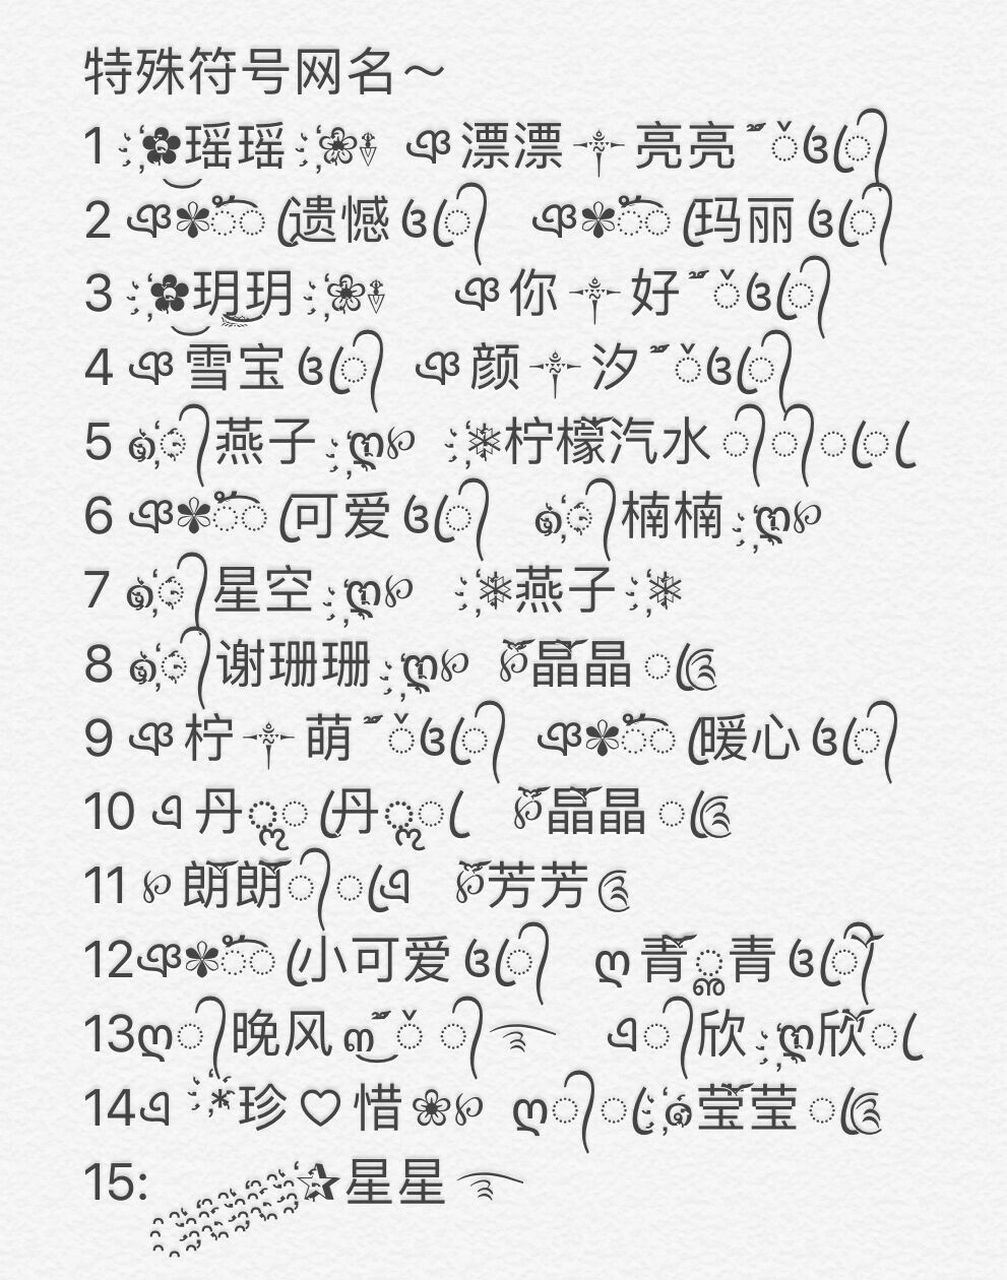 特殊符号网名～
1 ҉✿瑶瑶 ҉❀༒ ঞ 漂漂 ༒ 亮亮 ˇঔ( ᭄
2 ঞ✽ (遗憾 ঔ( ᭄ ঞ✽ (玛丽 ঔ( ᭄
3 ҉✿玥玥 ҉❀ ঞ 你 ༒ 好 ˇঔ( ᭄
4 ঞ 雪宝 ঔ( ᭄ ঞ 颜 ༒ 汐 ˇঔ( ᭄
5 ᭄燕子 ҉ღ℘ ҉❄柠檬汽水 ᭄᭄
6 ঞ✽ (可爱 ঔ( ᭄ ᭄楠楠 ҉ღ℘
7 ᭄星空 ҉ღ℘ ҉❄燕子 ҉❄
8 ᭄谢珊珊 ҉ღ℘ ℘晶晶
9 ঞ 柠 ༒ 萌 ˇঔ( ᭄ ঞ✽ (暖心 ঔ( ᭄
10 এ 丹 (丹 ( ℘晶晶
11 ℘ 朗朗 ᭄ (এ ℘芳芳
12ঞ✽ (小可爱 ঔ( ᭄ ღ 青 青 ঔ( ᭄
13ღ ᭄晚风 ᭄ এ ᭄欣 ҉ღ欣
14এ ҉*珍♡惜❀℘ ღ ᭄ ( 莹莹
15: ✰星星